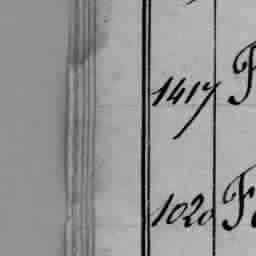 1417 F
1020 Fe